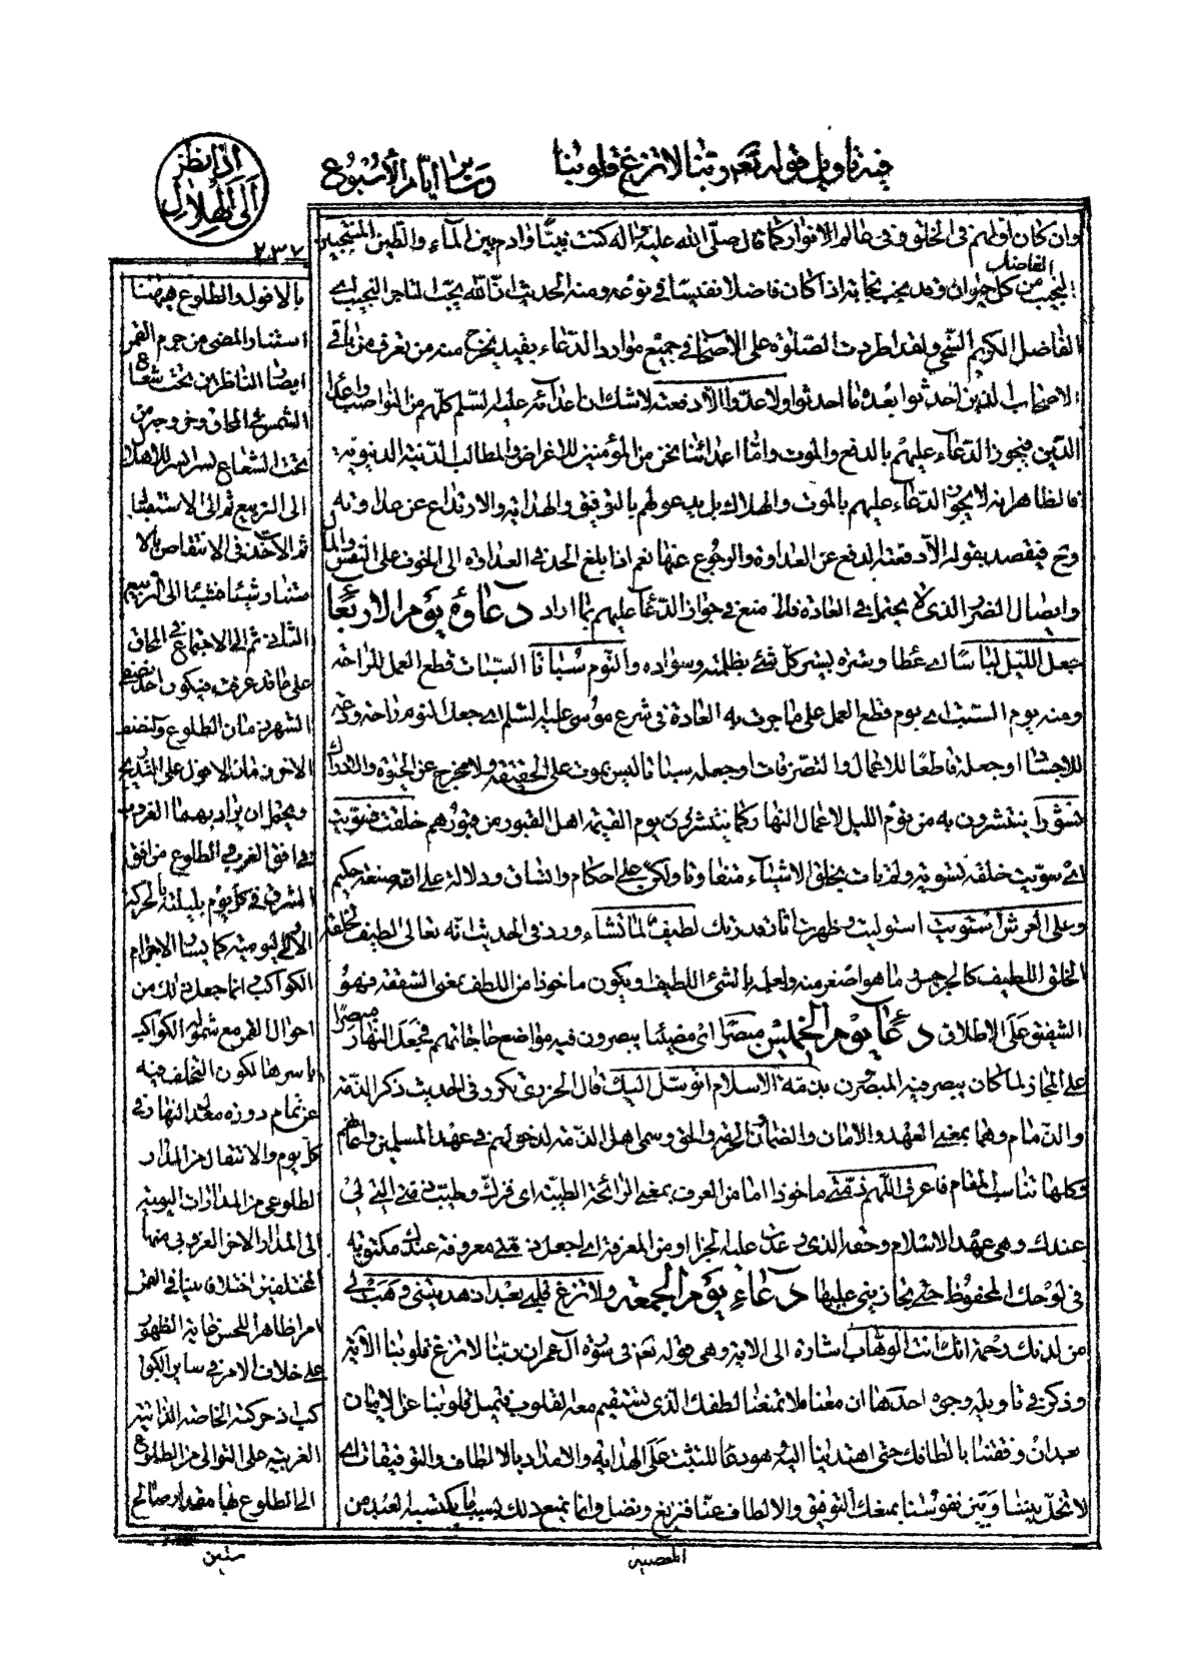 فيه تأويل قوله تعم ربنا لا تزغ قلوبنا
وسائر أيام الأسبوع
إذا نظر
إلى الهلال
٢٣٧
وان كان اولهم فى الخلق وفى عالم الانوار كما قال صلّى الله عليه واله كنت نبيّا وادم بين المآء والطّين المنتجبين
الفاضل
النجيب من كل حيوان وقد نجب نجابة اذا كان فاضلا نفيسا فى نوعه ومنه الحديث انّ الله يحبّ التاجر النجيب اى
الفاضل الكريم السّخى ولقد اطردت الصّلوة على الاصحاب فى جميع موارد الدّعاء بقيد يخرج منه من يفرق من باقى
الاصحاب الذين احدثوا بعده ما احدثوا ولا عدوّا الّا دفعته لا شك ان اعدائه عليه السّلم كلّهم من النواصب واعداء
الدّين فيجوز الدّعاء عليهم بالدفع والموت وامّا اعدائنا نحن من المؤمنين للاغراض والمطالب الدّنية الدنيوية
فالظاهر انه لا يجوز الدّعاء عليهم بالموت والهلاك بل يدعو لهم بالتوفيق والهداية والارتداع عن عداوته
وح فيقصد بقوله الّا دفعته الدفع عن العداوة والرجوع عنها نعم اذا بلغ الحد فى العداوة الى الخوف على النفس والمال
وايصال الضرر الذى لا يحتمل فى العادة فلا منع فى جواز الدّعا عليهم بما اراد دعاؤه يوم الاربعا
جعل الليل لباسا اى غطاء وستره يستر كلّ شئ بظلمته وسواده والنوم سباتا السبات قطع العمل للراحة
ومنه يوم السّبت اى يوم قطع العمل على ما جرت به العادة فى شرع موسى عليه السّلم اى جعل النوم راحة ودعة
للاجساد او جعله قاطعا للاعمال والتصرّفات او جعله سباتا ليس بموت على الحقيقة ولا مخرج عن الحيوة والادراك
نشورا ينتشرون به من نوم الليل لاعمال النهار وكما ينتشرون يوم القيمة اهل القبور من قبورهم خلقت فسويت
اى سوّيت خلقه تسوية ولم يات بخلق الاشياء متفاوتا ولكن على احكام واتساق ودلالة على انّه صنعة حكيم
وعلى العرش استويت استوليت وظهرت اثار قدرتك لطيف لما تشاء ورد فى الحديث انّه تعالى لطيف لخلقه
الخلق اللطيف كالجرجس وما هو اصغر منه ولعلمه بالشئ اللطيف ويكون ماخوذا من اللطف بمعنى الشفقة فهو
الشفيق على الاطلاق دعآء يوم الخميس مبصرا اى مضيئا يبصرون فيه مواضع حاجاتهم فجعل النهار مبصرا
على المجاز لما كان يبصر فيه المبصرون بذمّة الاسلام اتوسّل اليك قال الجزرى تكرر فى الحديث ذكر الذمّة
والذمام وهما بمعنى العهد والامان والضمان والحرمة والحق وسمى اهل الذمّة لدخولهم فى عهد المسلمين وامانهم
وكلها تناسب المقام فاعرف اللّهم ذمّتى ماخوذ اما من العرف بمعنى الرائحة الطيبة اى فزك وطيب ذمّتى التى لى
عندك وهى عهد الاسلام وحقه الذى وعدت عليه الجزاء او من المعرفة اى اجعل ذمّتى معروفة عندك مكتوبة
فى لوحك المحفوظ حتى تجازينى عليها دعاء يوم الجمعة ولا تزغ قلبى بعد اذ هديتنى وهب لى
من لدنك رحمة انك انت الوهّاب اشارة الى الاية وهى قوله تعم فى سورة آل عمران ربّنا لا تزغ قلوبنا الآية
وذكر فى تاويله وجوه احدها ان معناه لا تمنعنا لطفك الذى يستقيم معه القلوب فتميل قلوبنا عن الايمان
بعد ان وفقتنا بالطافك حتى اهتدينا اليه هو دعاء للتثبت على الهداية والامداد بالالطاف والتوفيقات اى
لا تخلّ بيننا وبين نفوسنا بمنعك التوفيق والالطاف عنّا فنزيغ ونضل وانما يمنع ذلك بسبب ما يكتسبه العبد من
المعصية
بالافول والطلوع هيهنا
استتار المضئ من جرم القمر
ابصار الناظرين تحت شعاع
الشمس فى المحاق وخروجه من
تحت الشعاع يسرا يسرا للاهلال
الى التربيع ثم الى الاستقبال
ثم الاخذ فى الانتقاص بالا
ستتار شيئا فشيئا الى التربيع
الثانى ثم الى الاجتماع فى المحاق
على ما قد عرفت فيكون احد نصفى
الشهر زمان الطلوع والنصف
الاخر زمان الافول على التدريج
ويحتمل ان يراد بهما الغروب
فى افق الغرب والطلوع من افق
الشرق فى كل يوم بليلته بالحركة
الاولى اليومية كما يسائر الاجرام
الكواكب انما جعل ذلك من
احوال القمر مع شموله الكواكب
باسرها لكون التخلف فيه
عن تمام دورة معدل النهار فى
كل يوم والانتقال من المدار
لطلوعى من المدارات اليومية
الى المدار الاخر الغروبى منها
المختلفين اختلافا بينا فى القمر
امرا ظاهرا للحس غاية الظهور
على خلاف الامر فى ساير الكوا
كب اذ حركته الخاصة الذاتية
الغربية على التوالى من الطلوع
الى الطلوع لها مقدار صالح
ستين